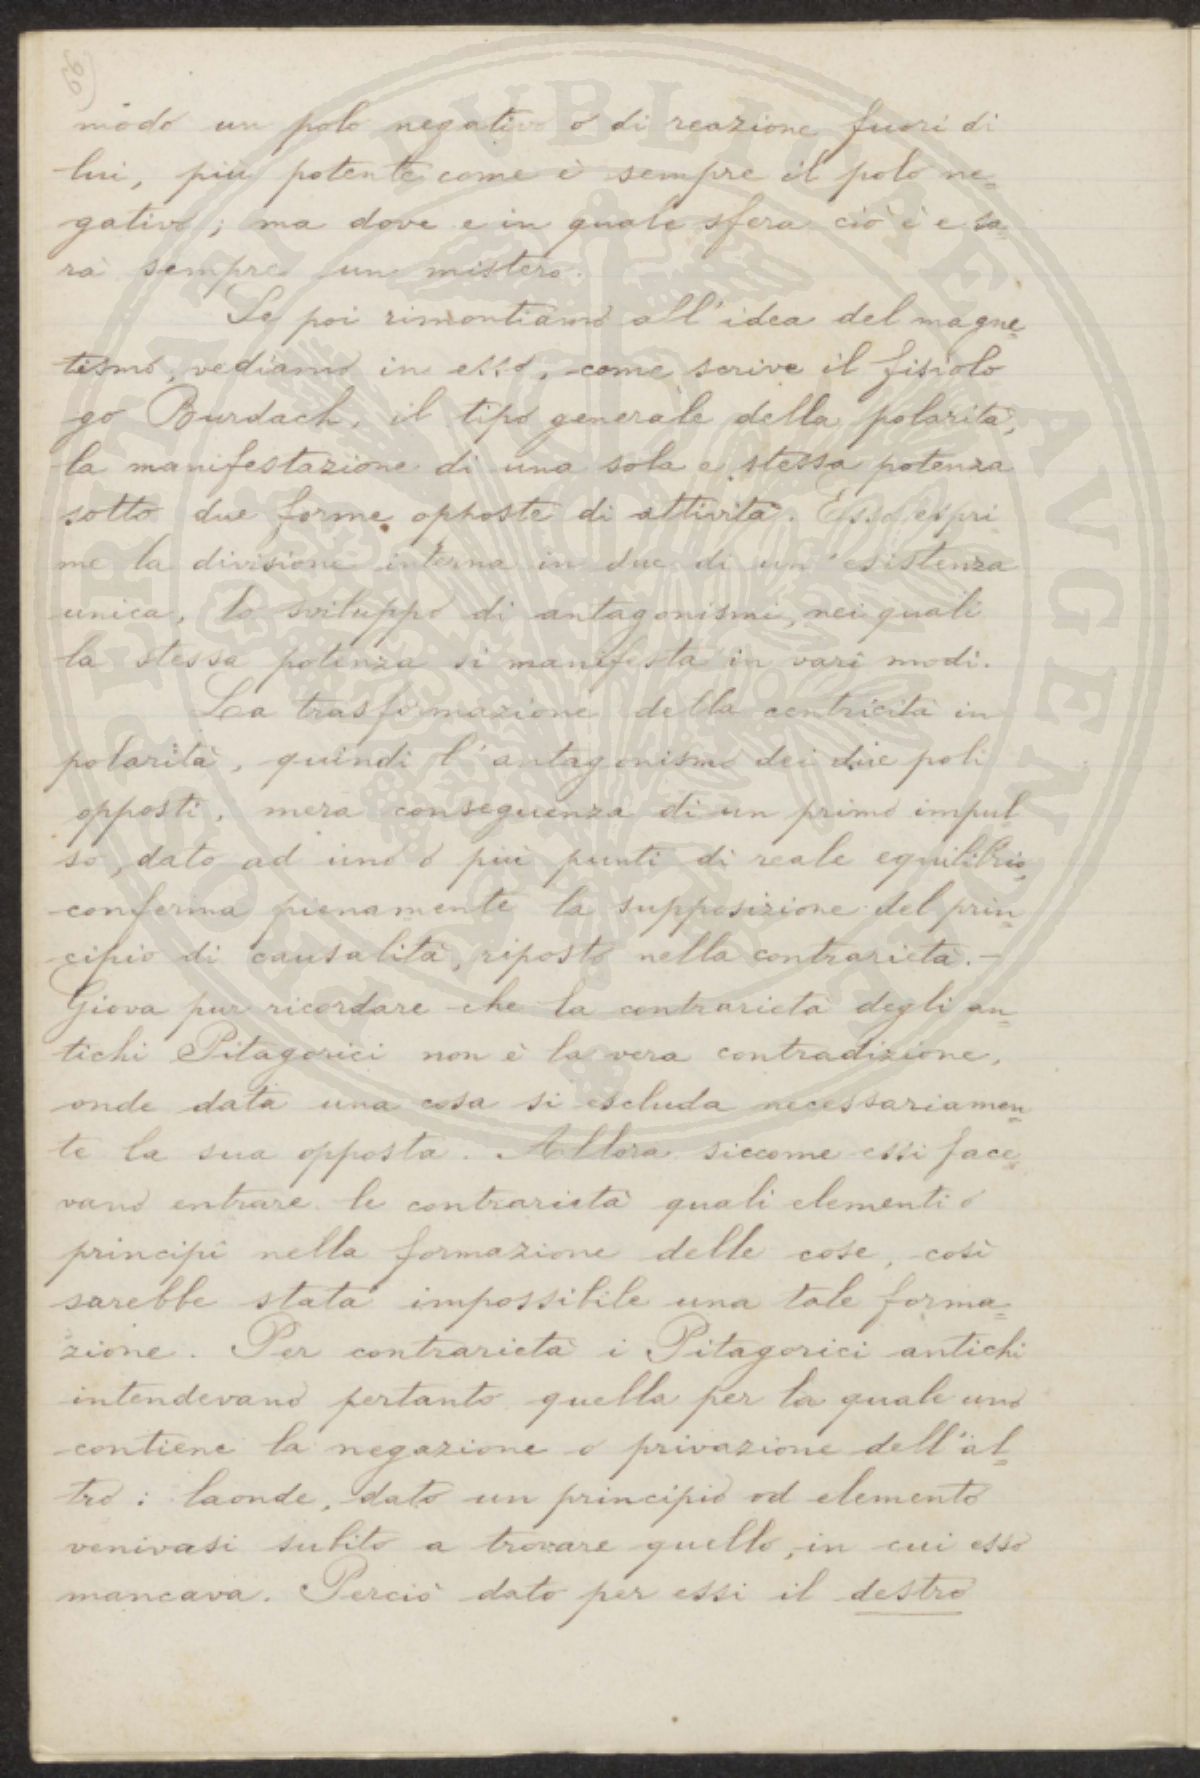 56)
modo un polo negativo o di reazione fuori di
lui, più potente come è sempre il polo ne=
gativo; ma dove e in quale sfera ciò è e sa=
rà sempre un mistero.
Se poi rimontiamo all'idea del magne=
tismo, vediamo in esso, come scrive il fisiolo
go Burdach, il tipo generale della polarità,
la manifestazione di una sola e stessa potenza
sotto due forme opposte di attività. Esso espri
me la divisione interna in due di un'esistenza
unica, lo sviluppo di antagonismi, nei quali
la stessa potenza si manifesta in vari modi.
La trasformazione della centricità in
polarità, quindi l'antagonismo dei due poli
opposti, mera conseguenza di un primo impul=
so, dato ad uno o più punti di reale equilibrio,
conferma pienamente la supposizione del prin=
cipio di causalità, riposto nella contrarietà.-
Giova pur ricordare che la contrarietà degli an=
tichi Pitagorici non è la vera contradizione,
onde data una cosa si escluda necessariamen=
te la sua opposta. Allora siccome essi face=
vano entrare le contrarietà quali elementi o
principî nella formazione delle cose, così
sarebbe stata impossibile una tale forma=
zione. Per contrarietà i Pitagorici antichi
intendevano pertanto quella per la quale uno
contiene la negazione o privazione dell'al=
tro: laonde, dato un principio od elemento
venivasi subito a trovare quello, in cui esso
mancava. Perciò dato per essi il destro